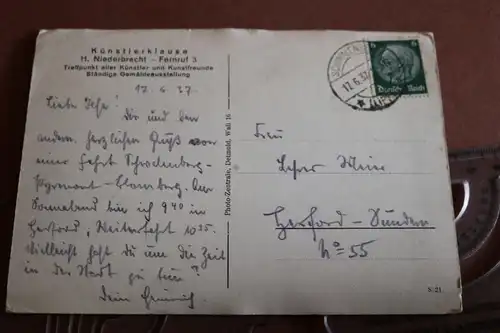 Künstlerklause
H. Niederbracht - Fernruf 3
Treffpunkt aller Künstler und Kunstfreunde
Ständige Gemäldeausstellung
17. 6 37.
Liebe Ilse! Dir und den
andern herzlichen Gruß von
einer Fahrt
Pyrmont - Blomberg. Am
Sonnabend bin ich 9 40 in
Herford, Weiterfahrt 10 35.
Vielleicht hast du um die Zeit
in der Stadt zu tun?
Dein Heinrich.
Photo-Zentrale, Detmold, Wall 16
17.6.37
6 6
Deutsches Reich
Frau
Lehrer Meier
Herford - Sundern
No = 55